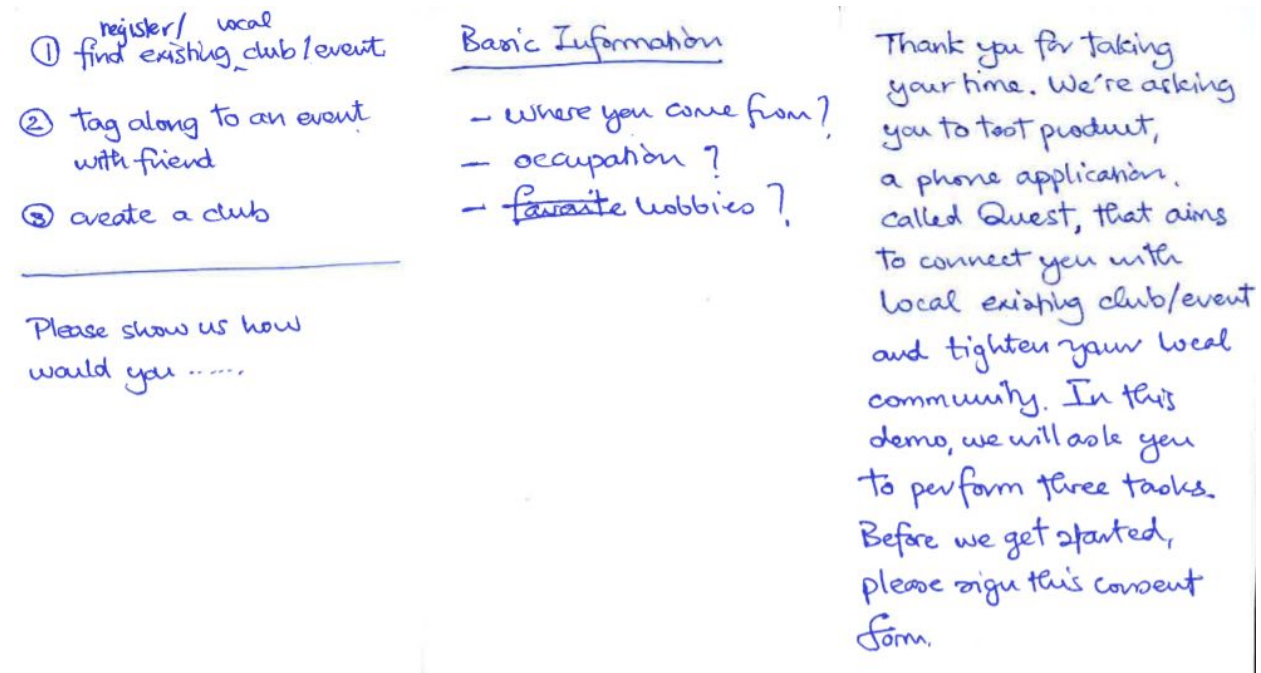 register/ local
① find existing ‸ club / event
② tag along to an event
with friend
③ create a club
Please show us how
would you ......
Basic Information
- where you come from?
- occupation ?
- favorite hobbies ?
Thank you for taking
your time. We're asking
you to test product,
a phone application,
called Quest, that aims
to connect you with
local existing club/event
and tighten your local
community. In this
demo, we will ask you
to perform three tasks.
Before we get started,
please sign this consent
form.